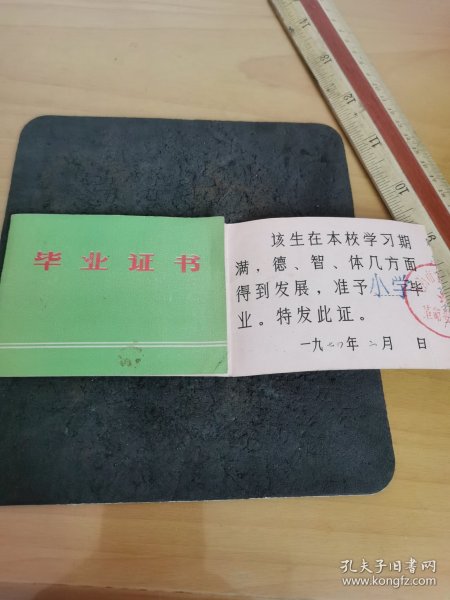 毕业证书
该生在本校学习期
满，德、智、体几方面
得到发展，准予小学毕
业。特发此证。
一九七〇年 月 日
11
10
9
孔夫子旧书网
www.kongfz.com